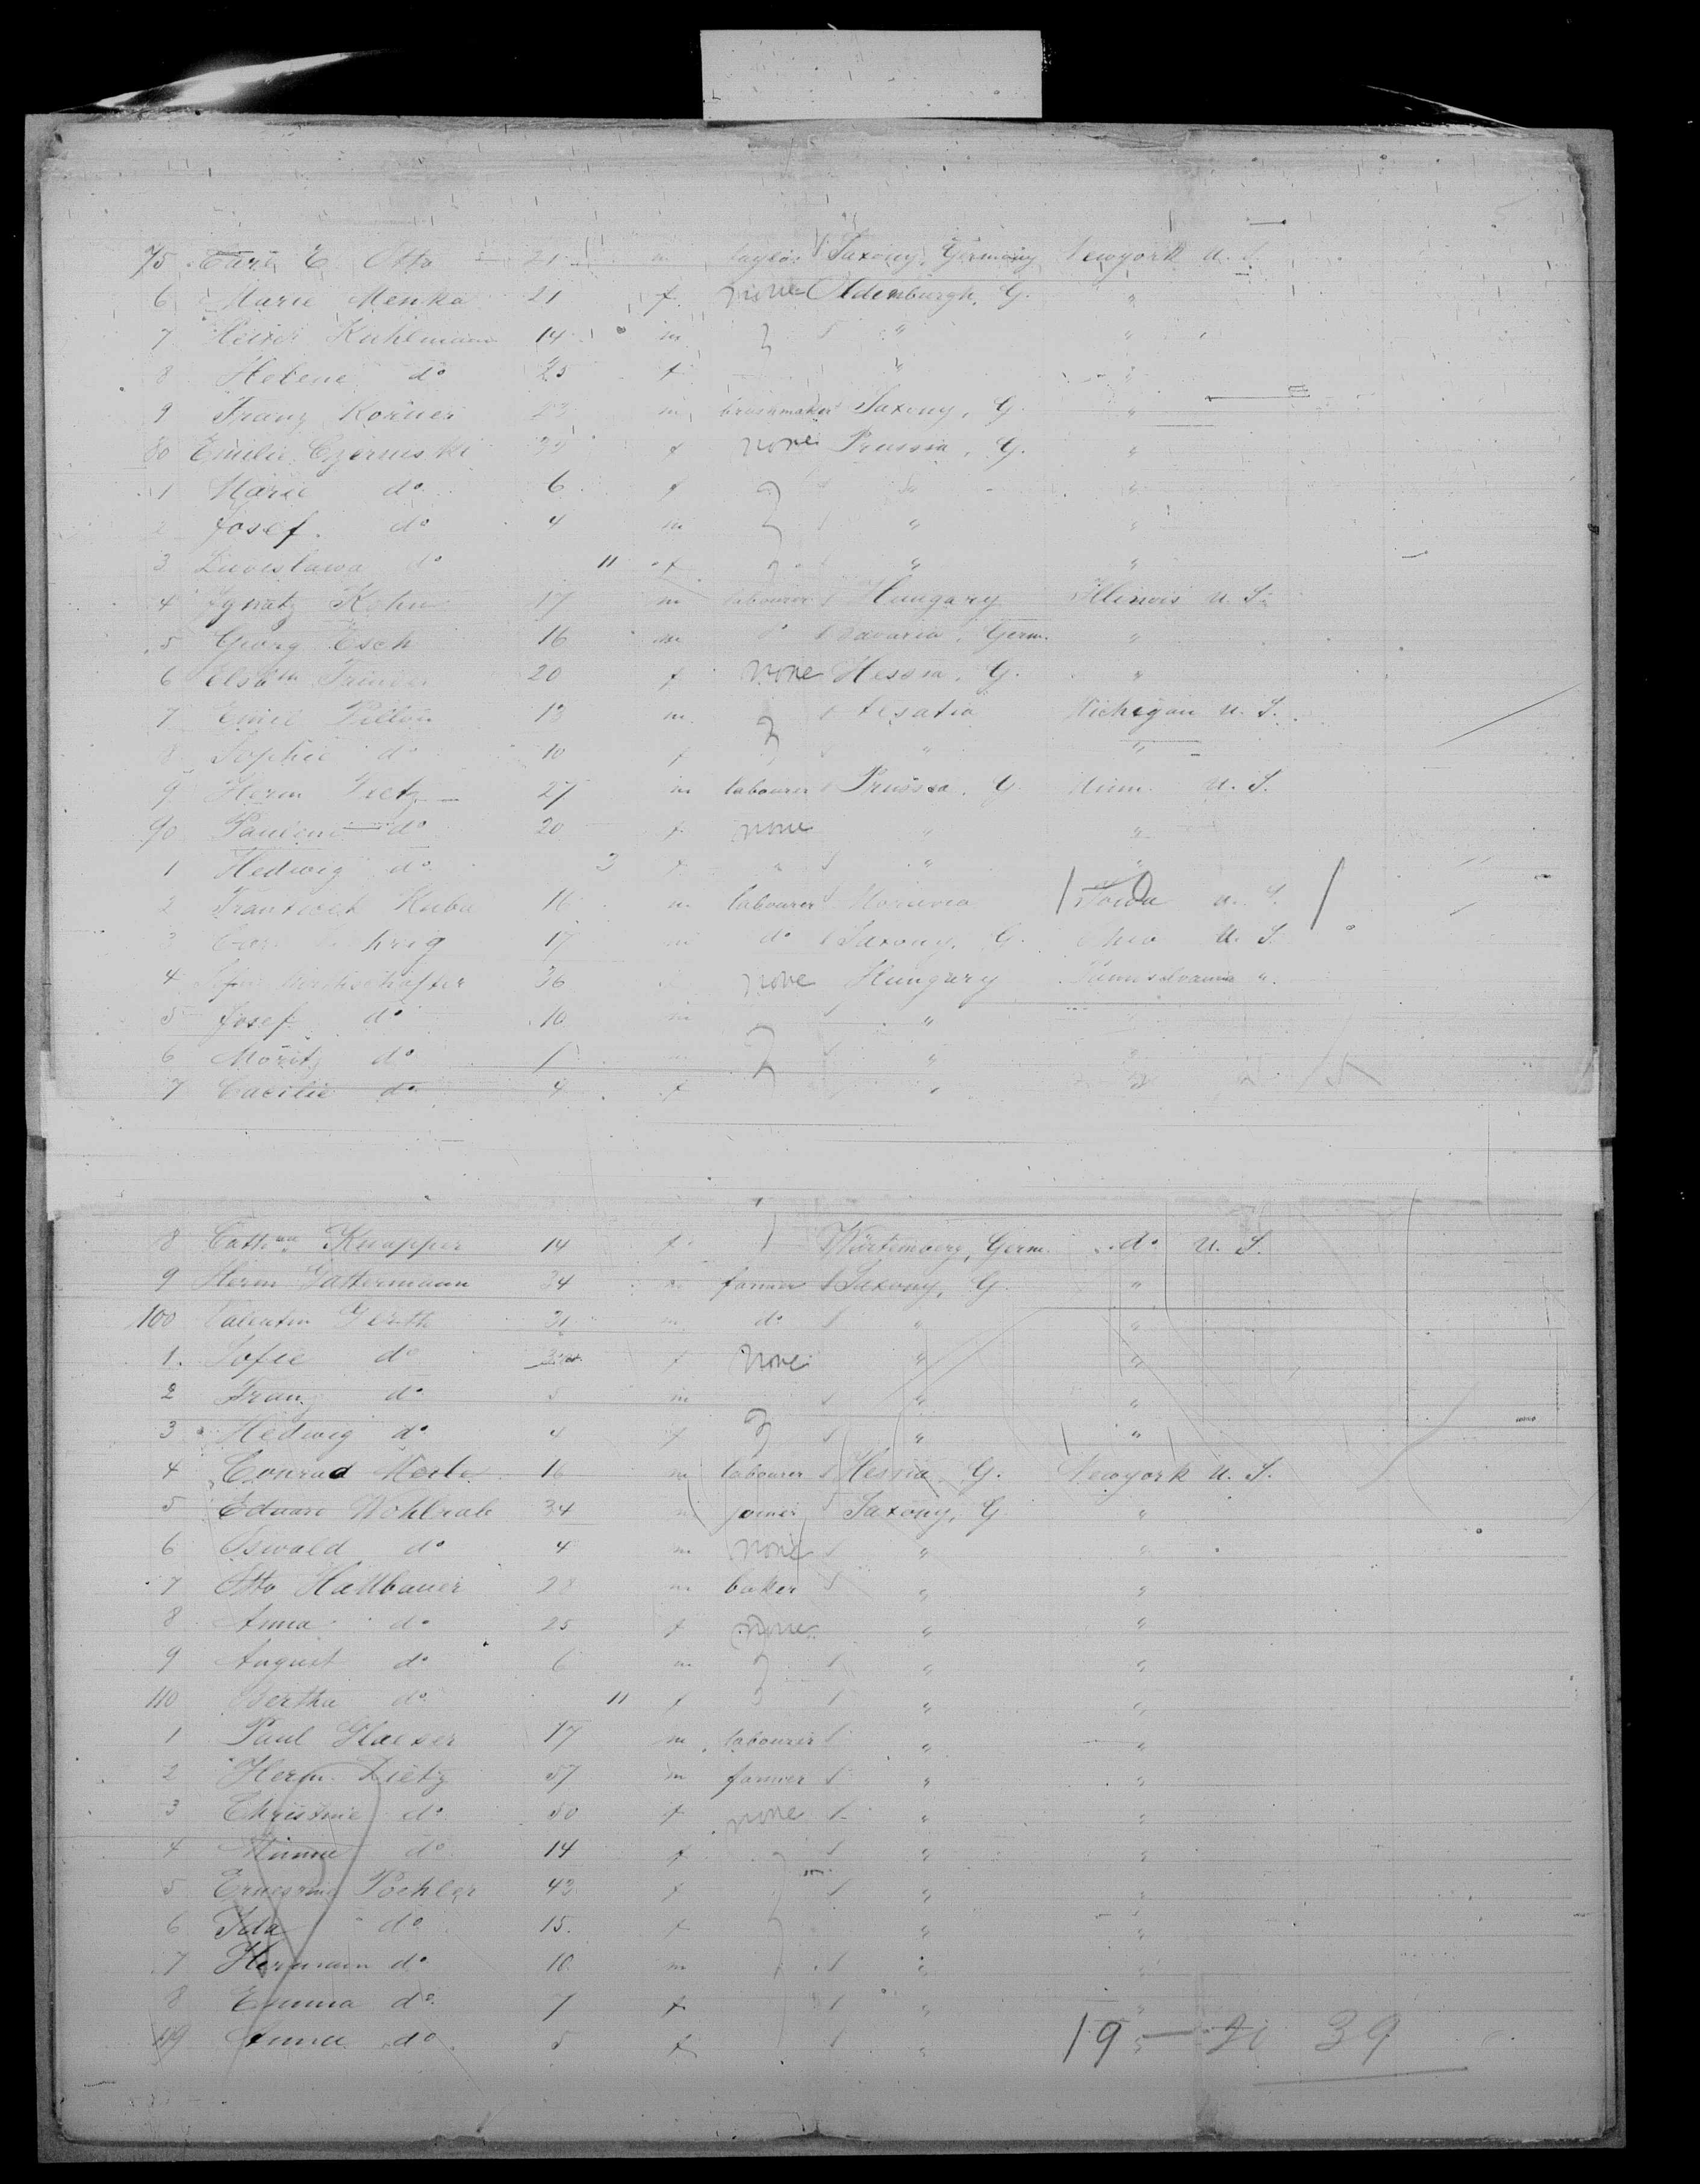 75 Carl E. Otto 21 m taylor Saxony, Germany Newyork U. S.
6 Marie Menka 21 f none Oldenburgh, G. "
7 Kuhlmann 14 m " "
8 Helene do 25 f " "
9 Franz Körner 23 m Saxony, G. "
80 Emilie Czerniski f none Prussia, G. "
1 Marie do 6 f " "
2 Josef do 4 m " "
3 do 11 f " "
4 Ignatz Kohn 17 m labourer Hungary Illinois U. S.
5 Georg Esch 16 m do Bavaria, Germ. "
6 20 f none Hessia, G. "
7 Emil 13 m Alsatia Michigan U. S.
8 Sophie do 10 f " "
9 Herm Dietz 27 m labourer Prussia, G. Minn. U. S.
90 Pauline do 20 f none " "
1 Hedwig do 3 f " " "
2 Frantisek Kuba 16 m labourer Moravia Iowa U. S.
3 17 m do Saxony, G. Ohio U. S.
4 36 none Hungary Pennsylvania "
5 Josef do 10 m "
6 Moritz do "
7 Caecilie do 4 f " "
8 Knapper 14 f Würtemberg, Germ. do U. S.
9 Herm Gattermann 34 m farmer Saxony, G. "
100 Valentin Gerth 31 m do " "
1. Sofie do f none " "
2 Franz do 5 m " "
3 Hedwig do 4 f " "
4 Conrad 16 m labourer Hessia, G. Newyork U. S.
5 Eduard Wohlrab 34 m joiner Saxony, G. "
6 Oswald do 4 m none " "
7 Otto Hallbauer 28 m baker " "
8 Anna do 25 f none " "
9 August do 6 m " "
110 Bertha do 11 f " "
1 Paul Glaeser 17 m labourer " "
2 Herm. Dietz 57 m farmer " "
3 Christine do 50 f none " "
4 Minna do 14 f " "
5 Ernestine Poehler 43 f " "
6 Ida do 15. f " "
7 Hermann do 10 m " "
8 Emma do 7 f " "
119 Anna do 5 f " "
19 — 20 39